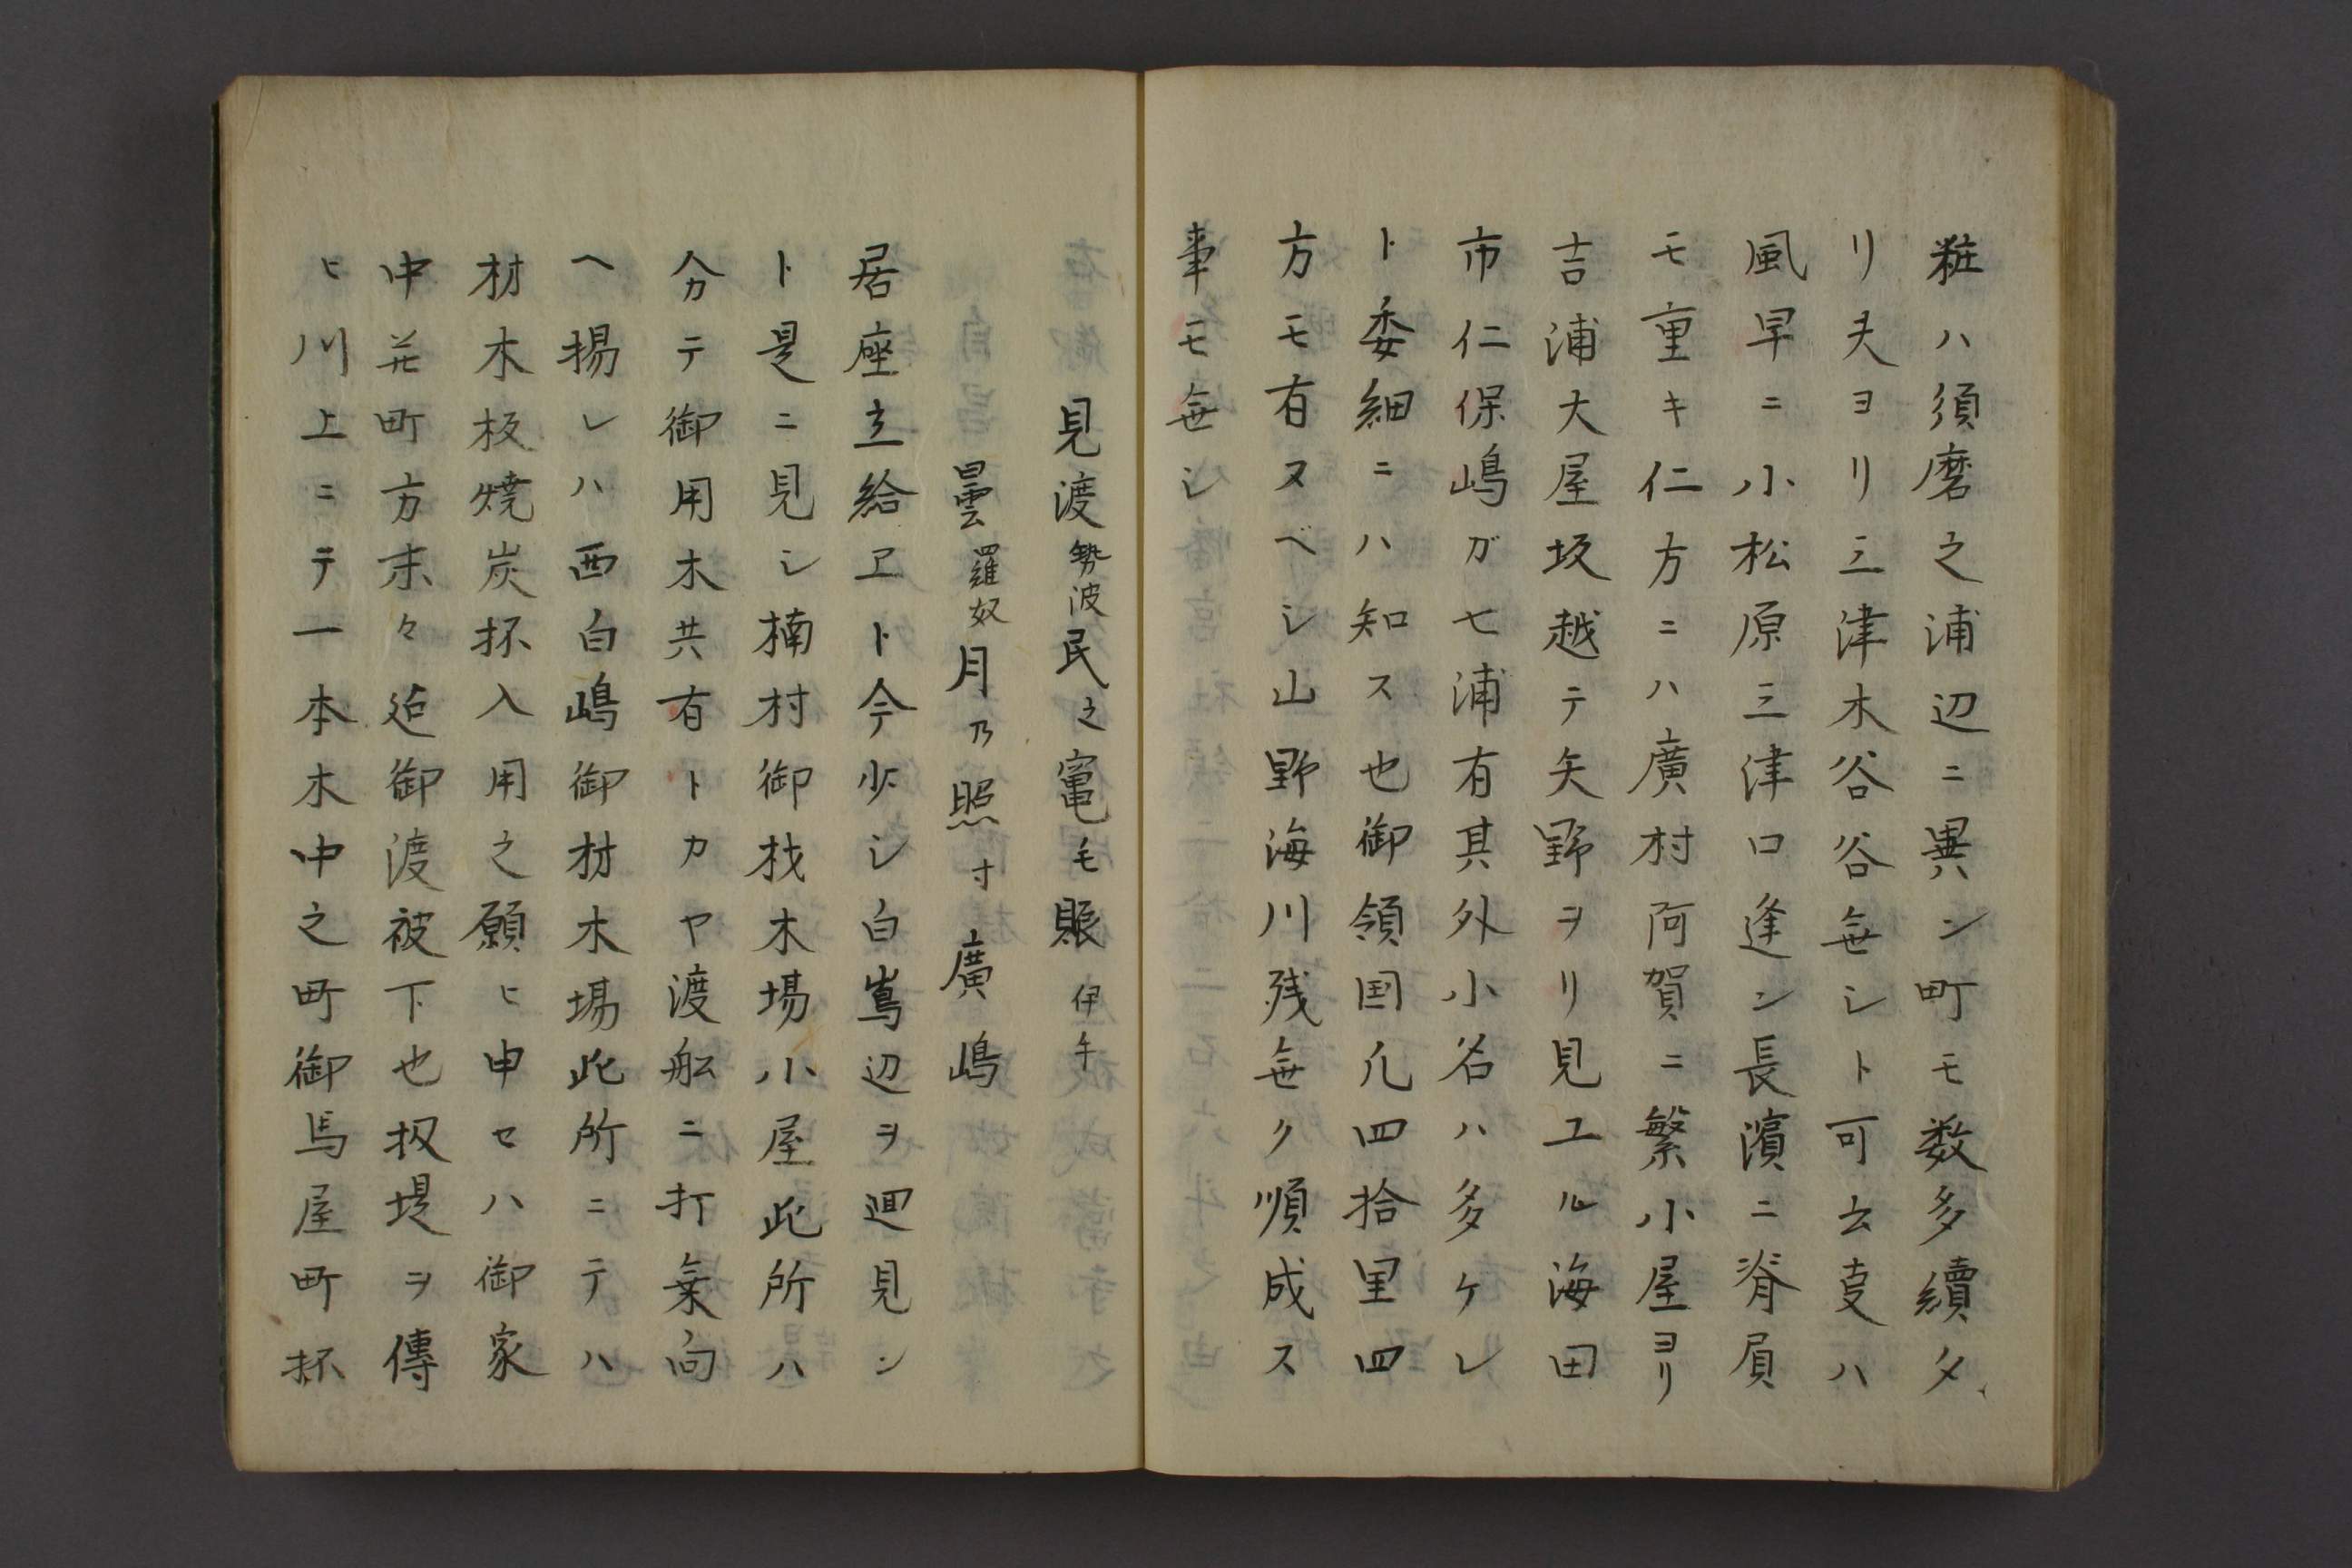 粧ハ須磨之浦辺ニ異ン町モ数多續タ
リ夫ヨリ三津木谷谷無シト可云叓ハ
風早ニ小松原三津口逢ン長濱ニ脊屓
モ重キ仁方ニハ廣村阿賀ニ繁小屋ヨリ
吉浦大屋坂越テ矢野ヲリ見エル海田
市仁保嶋ガ七浦有其外小名ハ多ケレ
ト委細ニハ知ス也御領国凡四拾里四
方モ有ヌベシ山野海川残無ク順成ス
事モ無シ
見渡勢波民之竃毛賑伊午
曇羅奴月乃照寸廣嶋
居座立給ヱト今少シ白嶌辺ヲ廻見ン
ト是ニ見シ楠村御材木場小屋此所ハ
分カテ御用木共有トカヤ渡舩ニ打乗向
ヘ揚レハ西白嶋御材木場此所ニテハ
材木板焼炭抔入用之願ヒ申セハ御家
中并町方末々迠御渡被下也扨堤ヲ傳
ヒ川上ニテ一本木中之町御馬屋町抔